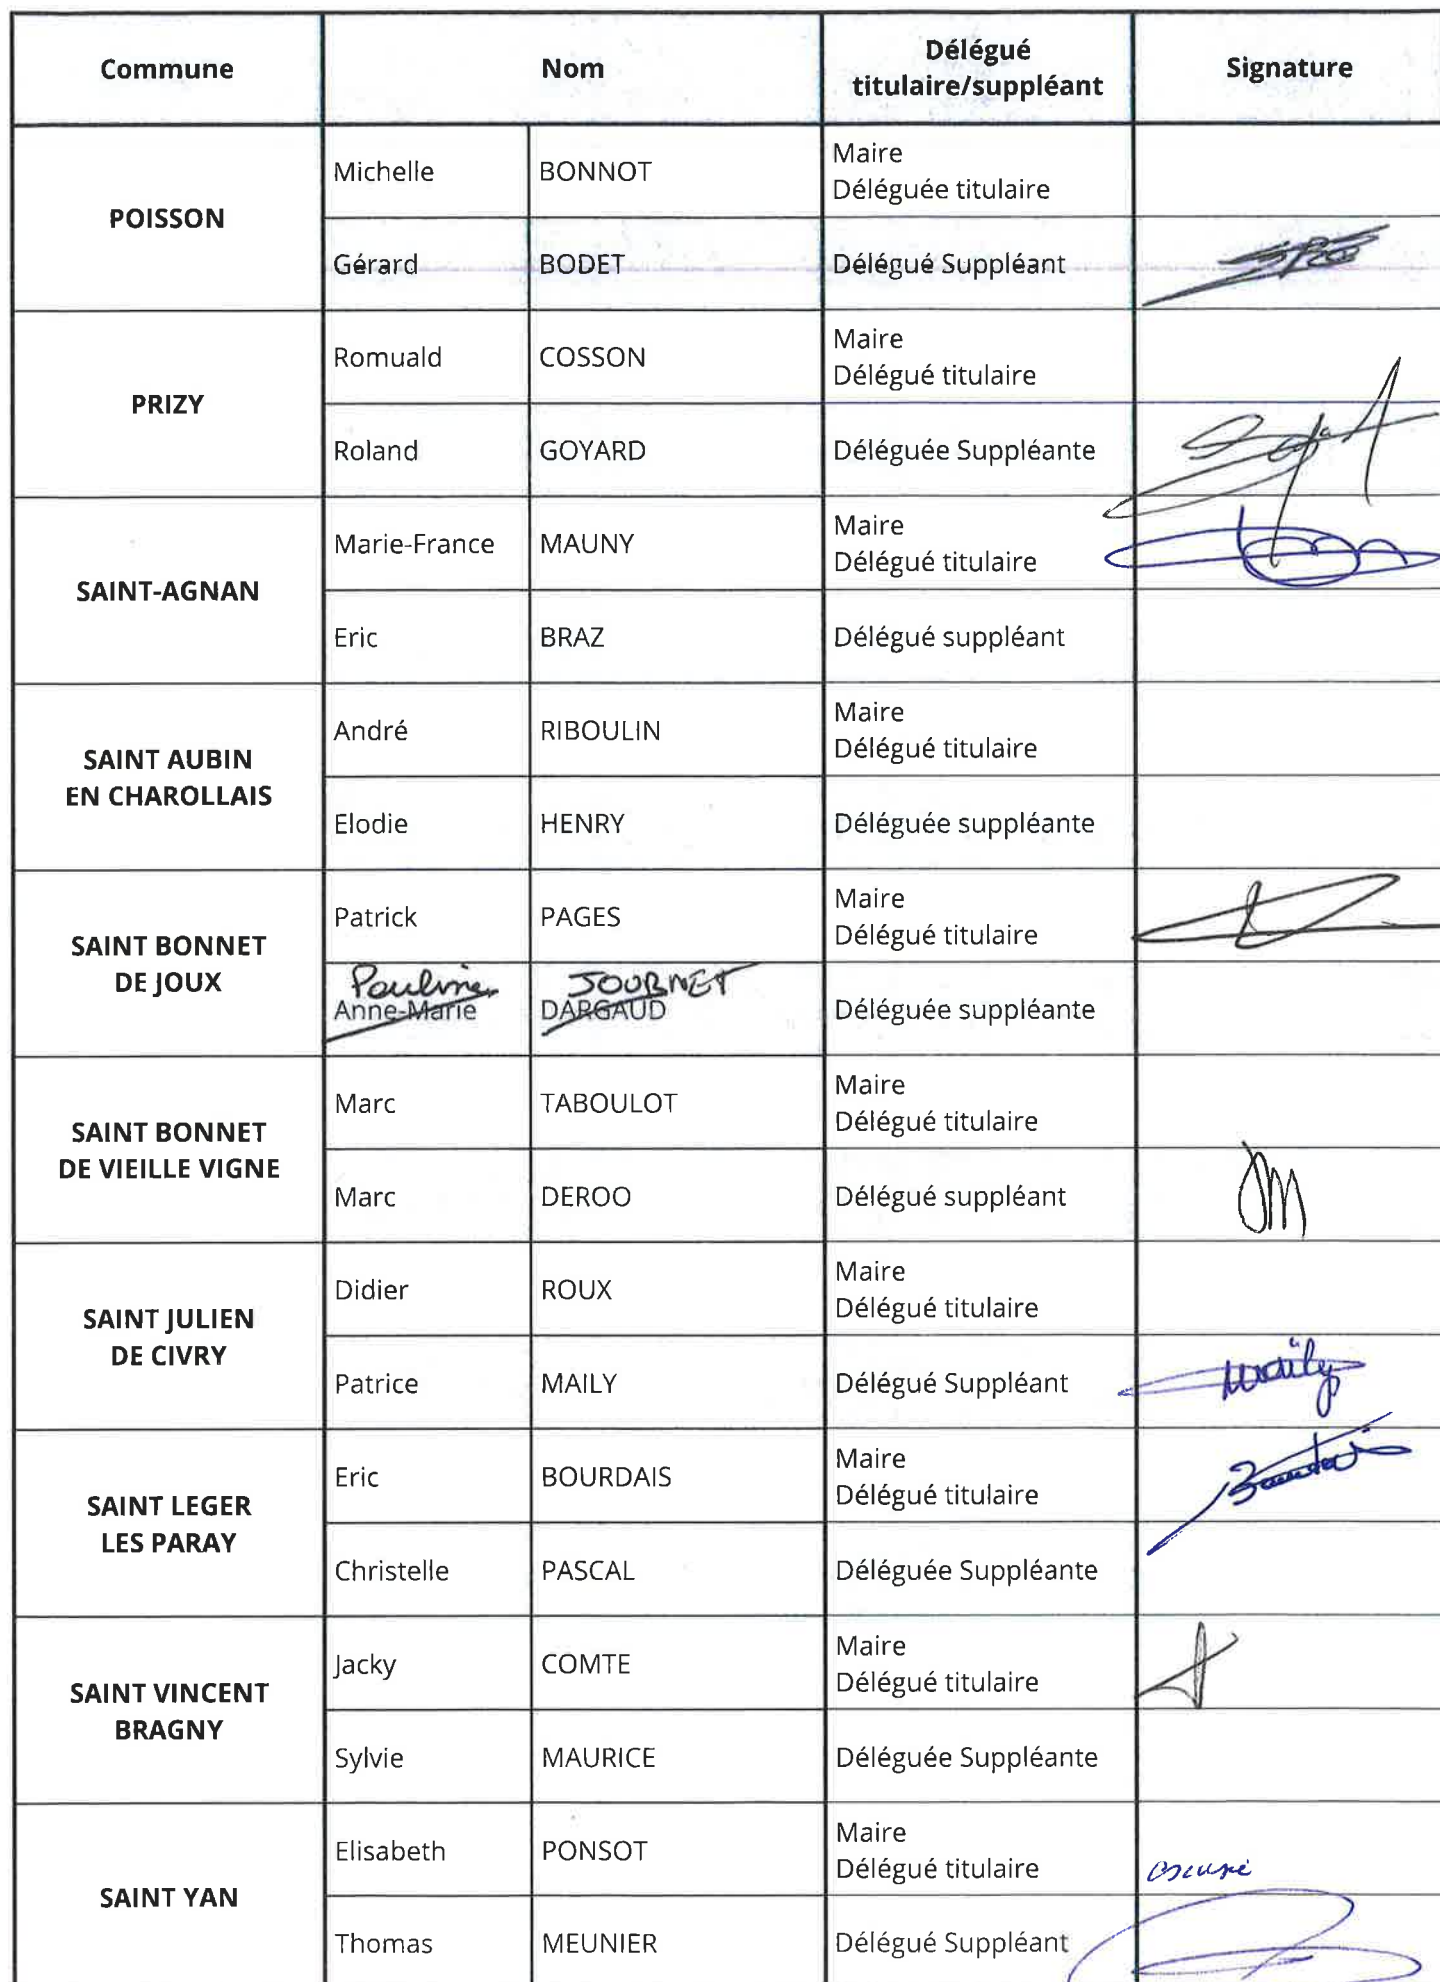 Commune Nom Délégué titulaire/suppléant Signature
POISSON
Michelle BONNOT Maire
Déléguée titulaire
Gérard BODET Délégué Suppléant
PRIZY
Romuald COSSON Maire
Délégué titulaire
Roland GOYARD Déléguée Suppléante
SAINT-AGNAN
Marie-France MAUNY Maire
Délégué titulaire
Eric BRAZ Délégué suppléant
SAINT AUBIN
EN CHAROLLAIS
André RIBOULIN Maire
Délégué titulaire
Elodie HENRY Déléguée suppléante
SAINT BONNET
DE JOUX
Patrick PAGES Maire
Délégué titulaire
Pauline JOURNET
Anne-Marie DARGAUD Déléguée suppléante
SAINT BONNET
DE VIEILLE VIGNE
Marc TABOULOT Maire
Délégué titulaire
Marc DEROO Délégué suppléant
SAINT JULIEN
DE CIVRY
Didier ROUX Maire
Délégué titulaire
Patrice MAILY Délégué Suppléant Maïly
SAINT LEGER
LES PARAY
Eric BOURDAIS Maire
Délégué titulaire
Christelle PASCAL Déléguée Suppléante
SAINT VINCENT
BRAGNY
Jacky COMTE Maire
Délégué titulaire
Sylvie MAURICE Déléguée Suppléante
SAINT YAN
Elisabeth PONSOT Maire
Délégué titulaire excusé
Thomas MEUNIER Délégué Suppléant